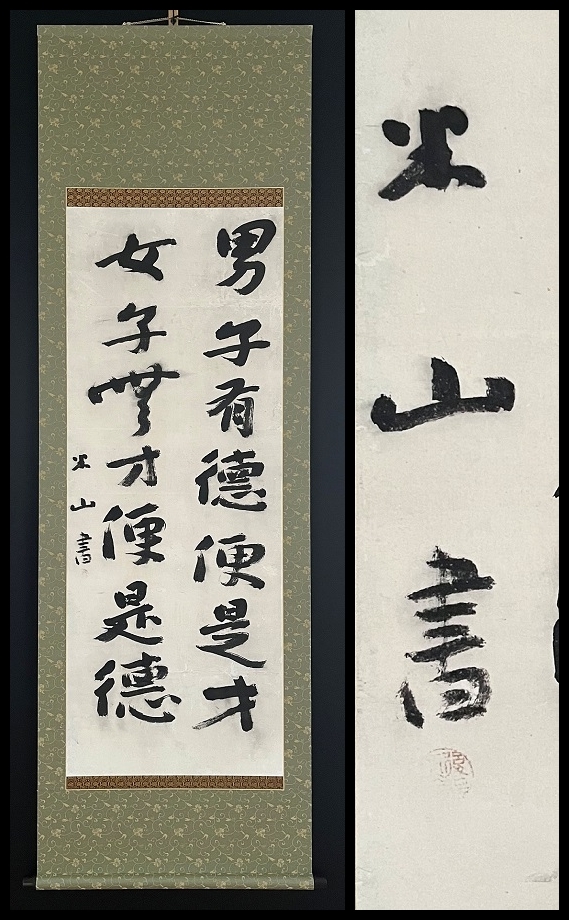 男子有德便是才
女子無才便是德
米山書
米山書